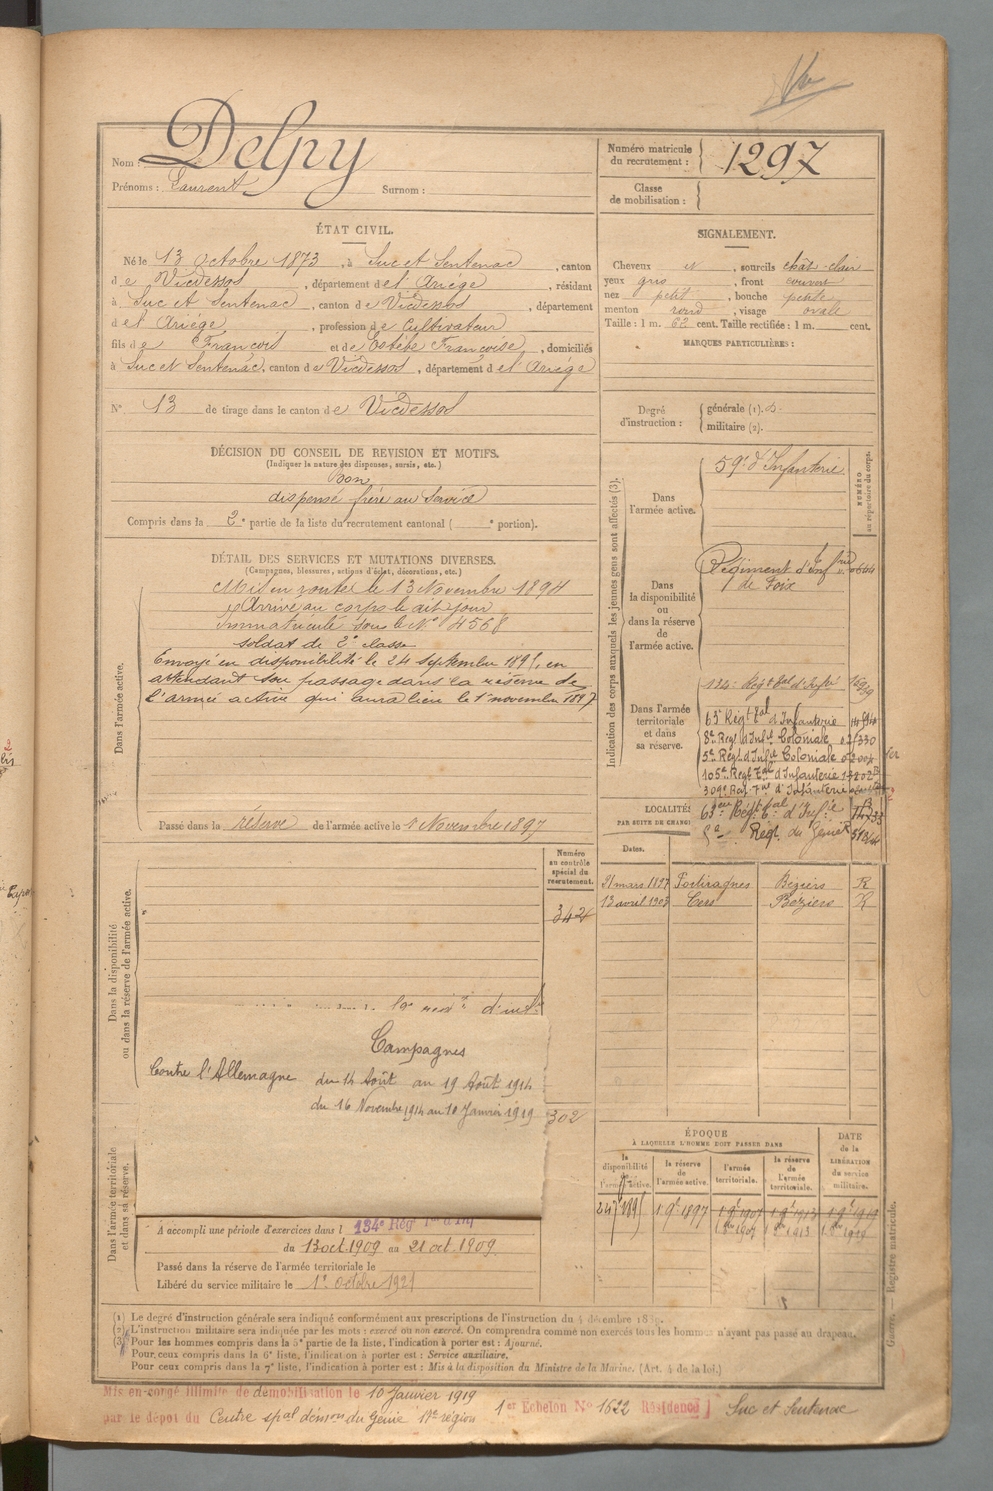 Nom : Delpy
Prénoms : Laurent Surnom :
Numéro matricule du recrutement : 1297
Classe de mobilisation :
ÉTAT CIVIL.
Né le 13 Octobre 1873, à Suc et Sentenac, canton
de Vicdessos, département de l'Ariége, résidant
à Suc et Sentenac, canton de Vicdessos, département
de l'Ariége, profession de Cultivateur
fils de François et de Estèbe Françoise, domiciliés
à Suc et Sentenac, canton de Vicdessos, département de l'Ariége
N° 13 de tirage dans le canton de Vicdessos
SIGNALEMENT.
Cheveux et, sourcils chât-clair
yeux gris, front couvert
nez petit, bouche petite
menton rond, visage ovale
Taille : 1 m. 62 cent. Taille rectifiée : 1 m. cent.
MARQUES PARTICULIÈRES :
Degré d'instruction :
générale (1).
militaire (2).
DÉCISION DU CONSEIL DE REVISION ET MOTIFS.
(Indiquer la nature des dispenses, sursis, etc.)
bon
dispensé frère au Service
Compris dans la 2e partie de la liste du recrutement cantonal ( e portion).
DÉTAIL DES SERVICES ET MUTATIONS DIVERSES.
(Campagnes, blessures, actions d'éclat, décorations, etc.)
Dans l'armée active.
Mis en route le 13 Novembre 1894
Arrivé au corps le dit jour
Immatriculé sous le N° 4568
soldat de 2e classe
Envoyé en disponibilité le 24 septembre 1895, en
attendant son passage dans la réserve de
l'armée active qui aura lieu le 1er novembre 1897
Passé dans la réserve de l'armée active le 1 Novembre 1897
Indication des corps auxquels les jeunes gens sont affectés (3).
NUMÉRO au répertoire du corps.
Dans l'armée active.
59e d'Infanterie
Dans la disponibilité ou dans la réserve de l'armée active.
Régiment d'Infrie
de Foix
Dans l'armée territoriale et dans sa réserve.
134e Régt tal d'Infie
63e Régt tal d'Infanterie
8e Régt d'Infie Coloniale
5e Régt d'Infie Coloniale
105e Régt Tal d'Infanterie
309e Régt Tal d'Infanterie
63em Régt tal d'Infie
Régt du Génie
LOCALITÉS
PAR SUITE DE CHANG
Dates.
21 mars 1897 Portiragnes Béziers R
13 avril 1903 Cers Beziers R
Dans la disponibilité ou dans la réserve de l'armée active.
Numéro au contrôle spécial du recrutement.
342
Campagnes
Contre l'Allemagne du 14 Août au 19 Août 1914
du 16 Novembre 1914 au 10 Janvier 1919
302
Dans l'armée territoriale et dans sa réserve.
A accompli une période d'exercices dans l 134e Rég
du 13 oct. 1909 au 21 oct. 1909.
Passé dans la réserve de l'armée territoriale le
Libéré du service militaire le 1er octobre 1921
ÉPOQUE
À LAQUELLE L'HOMME DOIT PASSER DANS
DATE de la LIBÉRATION du service militaire.
la disponibilité de l'armée active.
la réserve de l'armée active.
l'armée territoriale.
la réserve de l'armée territoriale.
1 9e 1897
Guerre. — Registre matricule.
(1) Le degré d'instruction générale sera indiqué conformément aux prescriptions de l'instruction du 4 décembre
(2) L'instruction militaire sera indiquée par les mots : exercé ou non exercé. On comprendra comme non exercés tous les hommes n'ayant pas passé au drapeau.
(3) Pour les hommes compris dans la 5e partie de la liste, l'indication à porter est : Ajourné.
Pour ceux compris dans la 6e liste, l'indication à porter est : Service auxiliaire.
Pour ceux compris dans la 7e liste, l'indication à porter est : Mis à la disposition du Ministre de la Marine. (Art. 4 de la loi.)
Mis en congé illimité de démobilisation le 10 Janvier 1919
par le dépôt du Centre spal démon du Génie 17e région 1er Echelon N° 1622 Résidence Suc et Sentenac